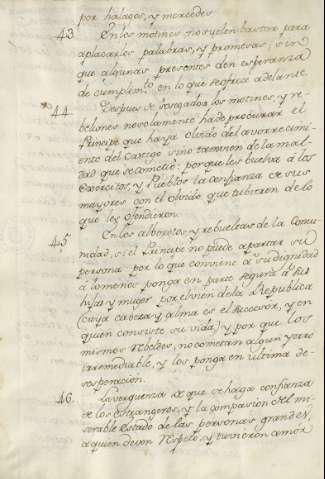 por halagos, y mercedes
43 En los motines no suelen bastar para
aplacarlos palabras, y promesas, sin
que algunas presentes den esperanza
de cumplim.to en lo que se ofrece adelante.
44 Despues de sosegados los motines, y re-
beliones no solamente ha de procurar el
Principe que haya olvido del aborrecimi-
ento del Castigo sino tambien de la mal-
dad que se cometió: porque les buelve á los
Exercitos, y Pueblos la confianza de sus
mayores con el olvido que tubieren de lo
que les ofendieron.
45 En los alborotos, y rebueltas de la Comu-
nidad, si el Principe no puede apartar su
persona por lo que conviene á su dignidad
á lo menos ponga en parte segura á sus
hijos y muger por el bien de la Republica
(cuya cabeza y alma es el sucesor, y en
quien consiste su vida) y por que los
mismos rebeldes, no cometan algun yerro
irremediable, y los ponga en ultima de-
sesperacion.
46 La verguenza de que se haga confianza
de los estrangeros, y la compasion del mi-
serable Estado de las personas grandes,
a quien deven respeto, y tuvieron amor